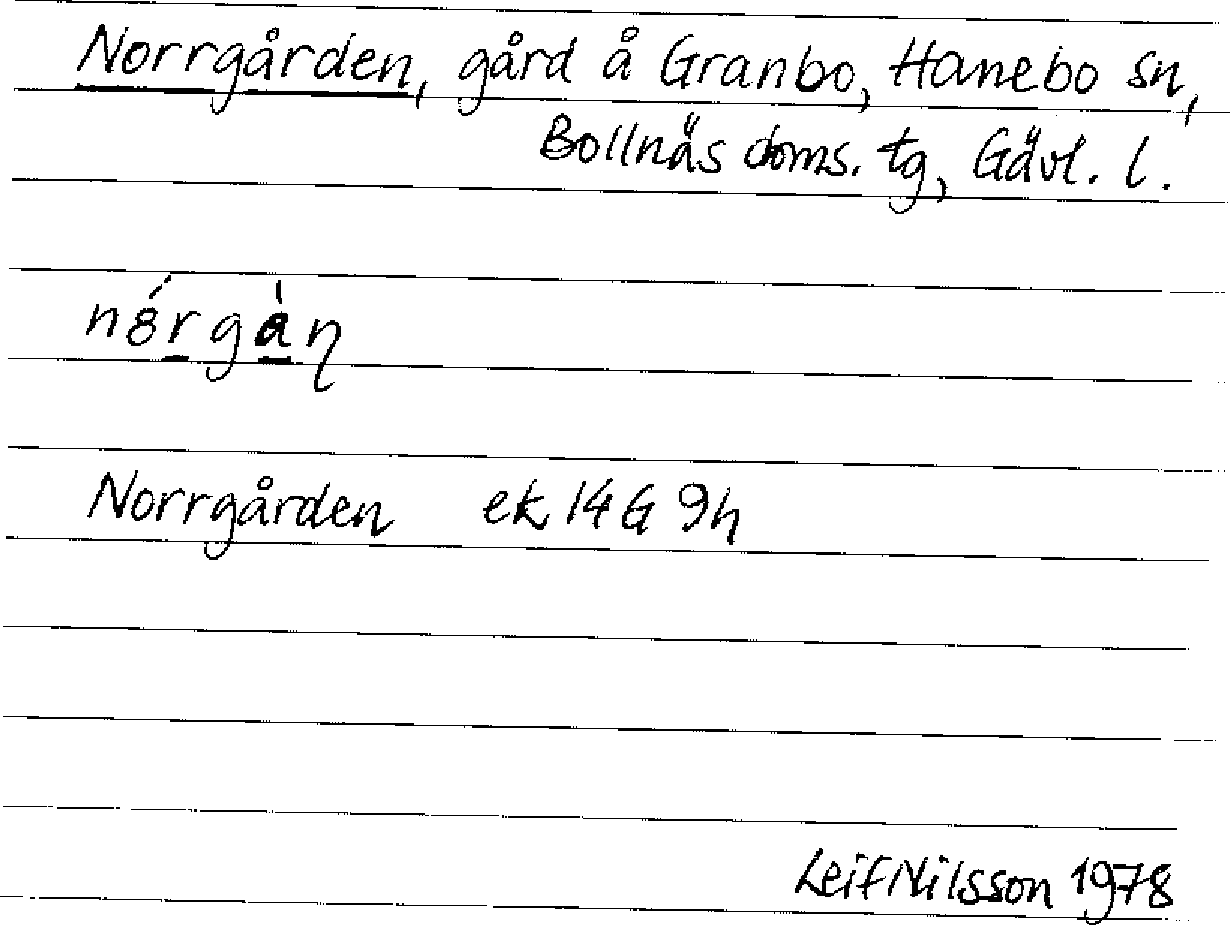 Norrgården, gård å Granbo, Hanebo sn,
Bollnäs doms. tg, Gävl. l.
Norrgården ek 14G 9h
Leif Nilsson 1978